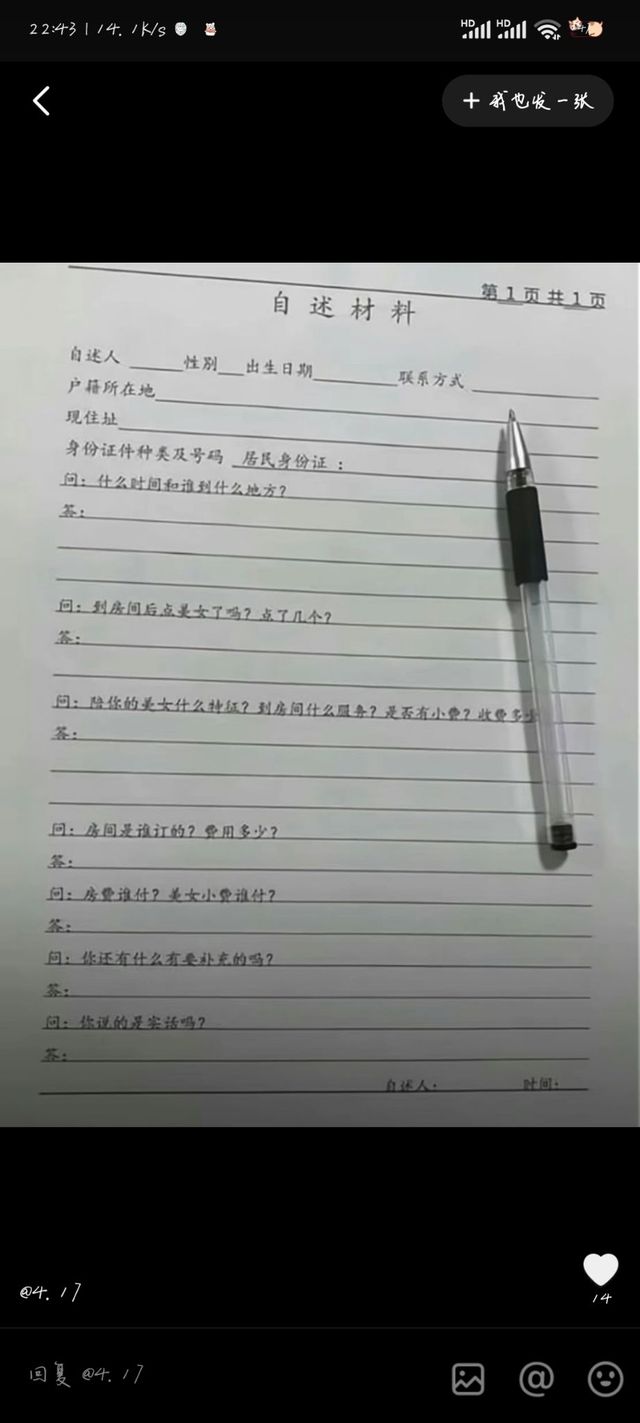 22:43 | 14.1K/s
HD HD
+ 我也发一张
第 1 页 共 1 页
自 述 材 料
自述人 ______ 性别___ 出生日期________ 联系方式 ____________
户籍所在地
现住址
身份证件种类及号码 居民身份证：
问：什么时间和谁到什么地方？
答：
问：到房间后点美女了吗？点了几个？
答：
问：陪你的美女什么特征？到房间什么服务？是否有小费？收费多少
答：
问：房间是谁订的？费用多少？
答：
问：房费谁付？美女小费谁付？
答：
问：你还有什么有要补充的吗？
答：
问：你说的是实话吗？
答：
自述人： 时间：
@4.17
14
回复 @4.17